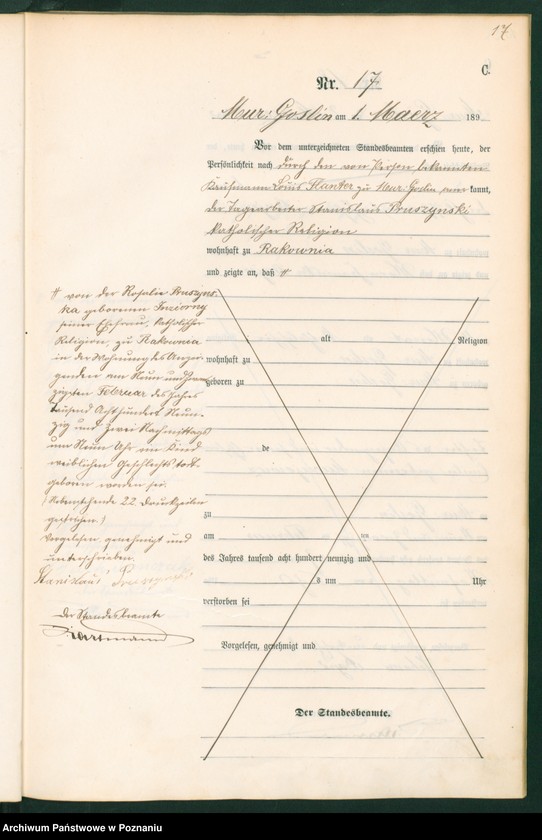 17
C.
Nr. 17
Mur: Goslin am 1. Maerz 189
Vor dem unterzeichneten Standesbeamten erschien heute, der
Persönlichkeit nach durch den von Person bekannten
Kaufmann Louis Flanter zu Mur. Goslin, aner kannt,
der Tagearbeiter Stanislaus Pruszynski
katholischer Religion
wohnhaft zu Rakownia
und zeigte an, daß
von der Rosalie Pruszyns-
ka geborenen
seiner Ehefrau, katholischer
Religion, zu Rakownia
in der Wohnung des Anzei-
genden am Neun und zwan-
zigsten Februar des Jahres
tausend Achthundert Neun-
zig und zwei Nachmittags
um Neun Uhr ein Kind
weiblichen Geschlechts todt-
geboren worden sei.
(Nebenstehende 22 Druckzeilen
gestrichen.)
Vorgelesen, genehmigt und
unterschrieben.
Stanislaus Pruszynski
Der Standesbeamte
Hartmann
alt Religion
wohnhaft zu
geboren zu
de
zu
am ten
des Jahres tausend acht hundert neunzig und
s um Uhr
verstorben sei
Vorgelesen, genehmigt und
Der Standesbeamte.
Archiwum Państwowe w Poznaniu